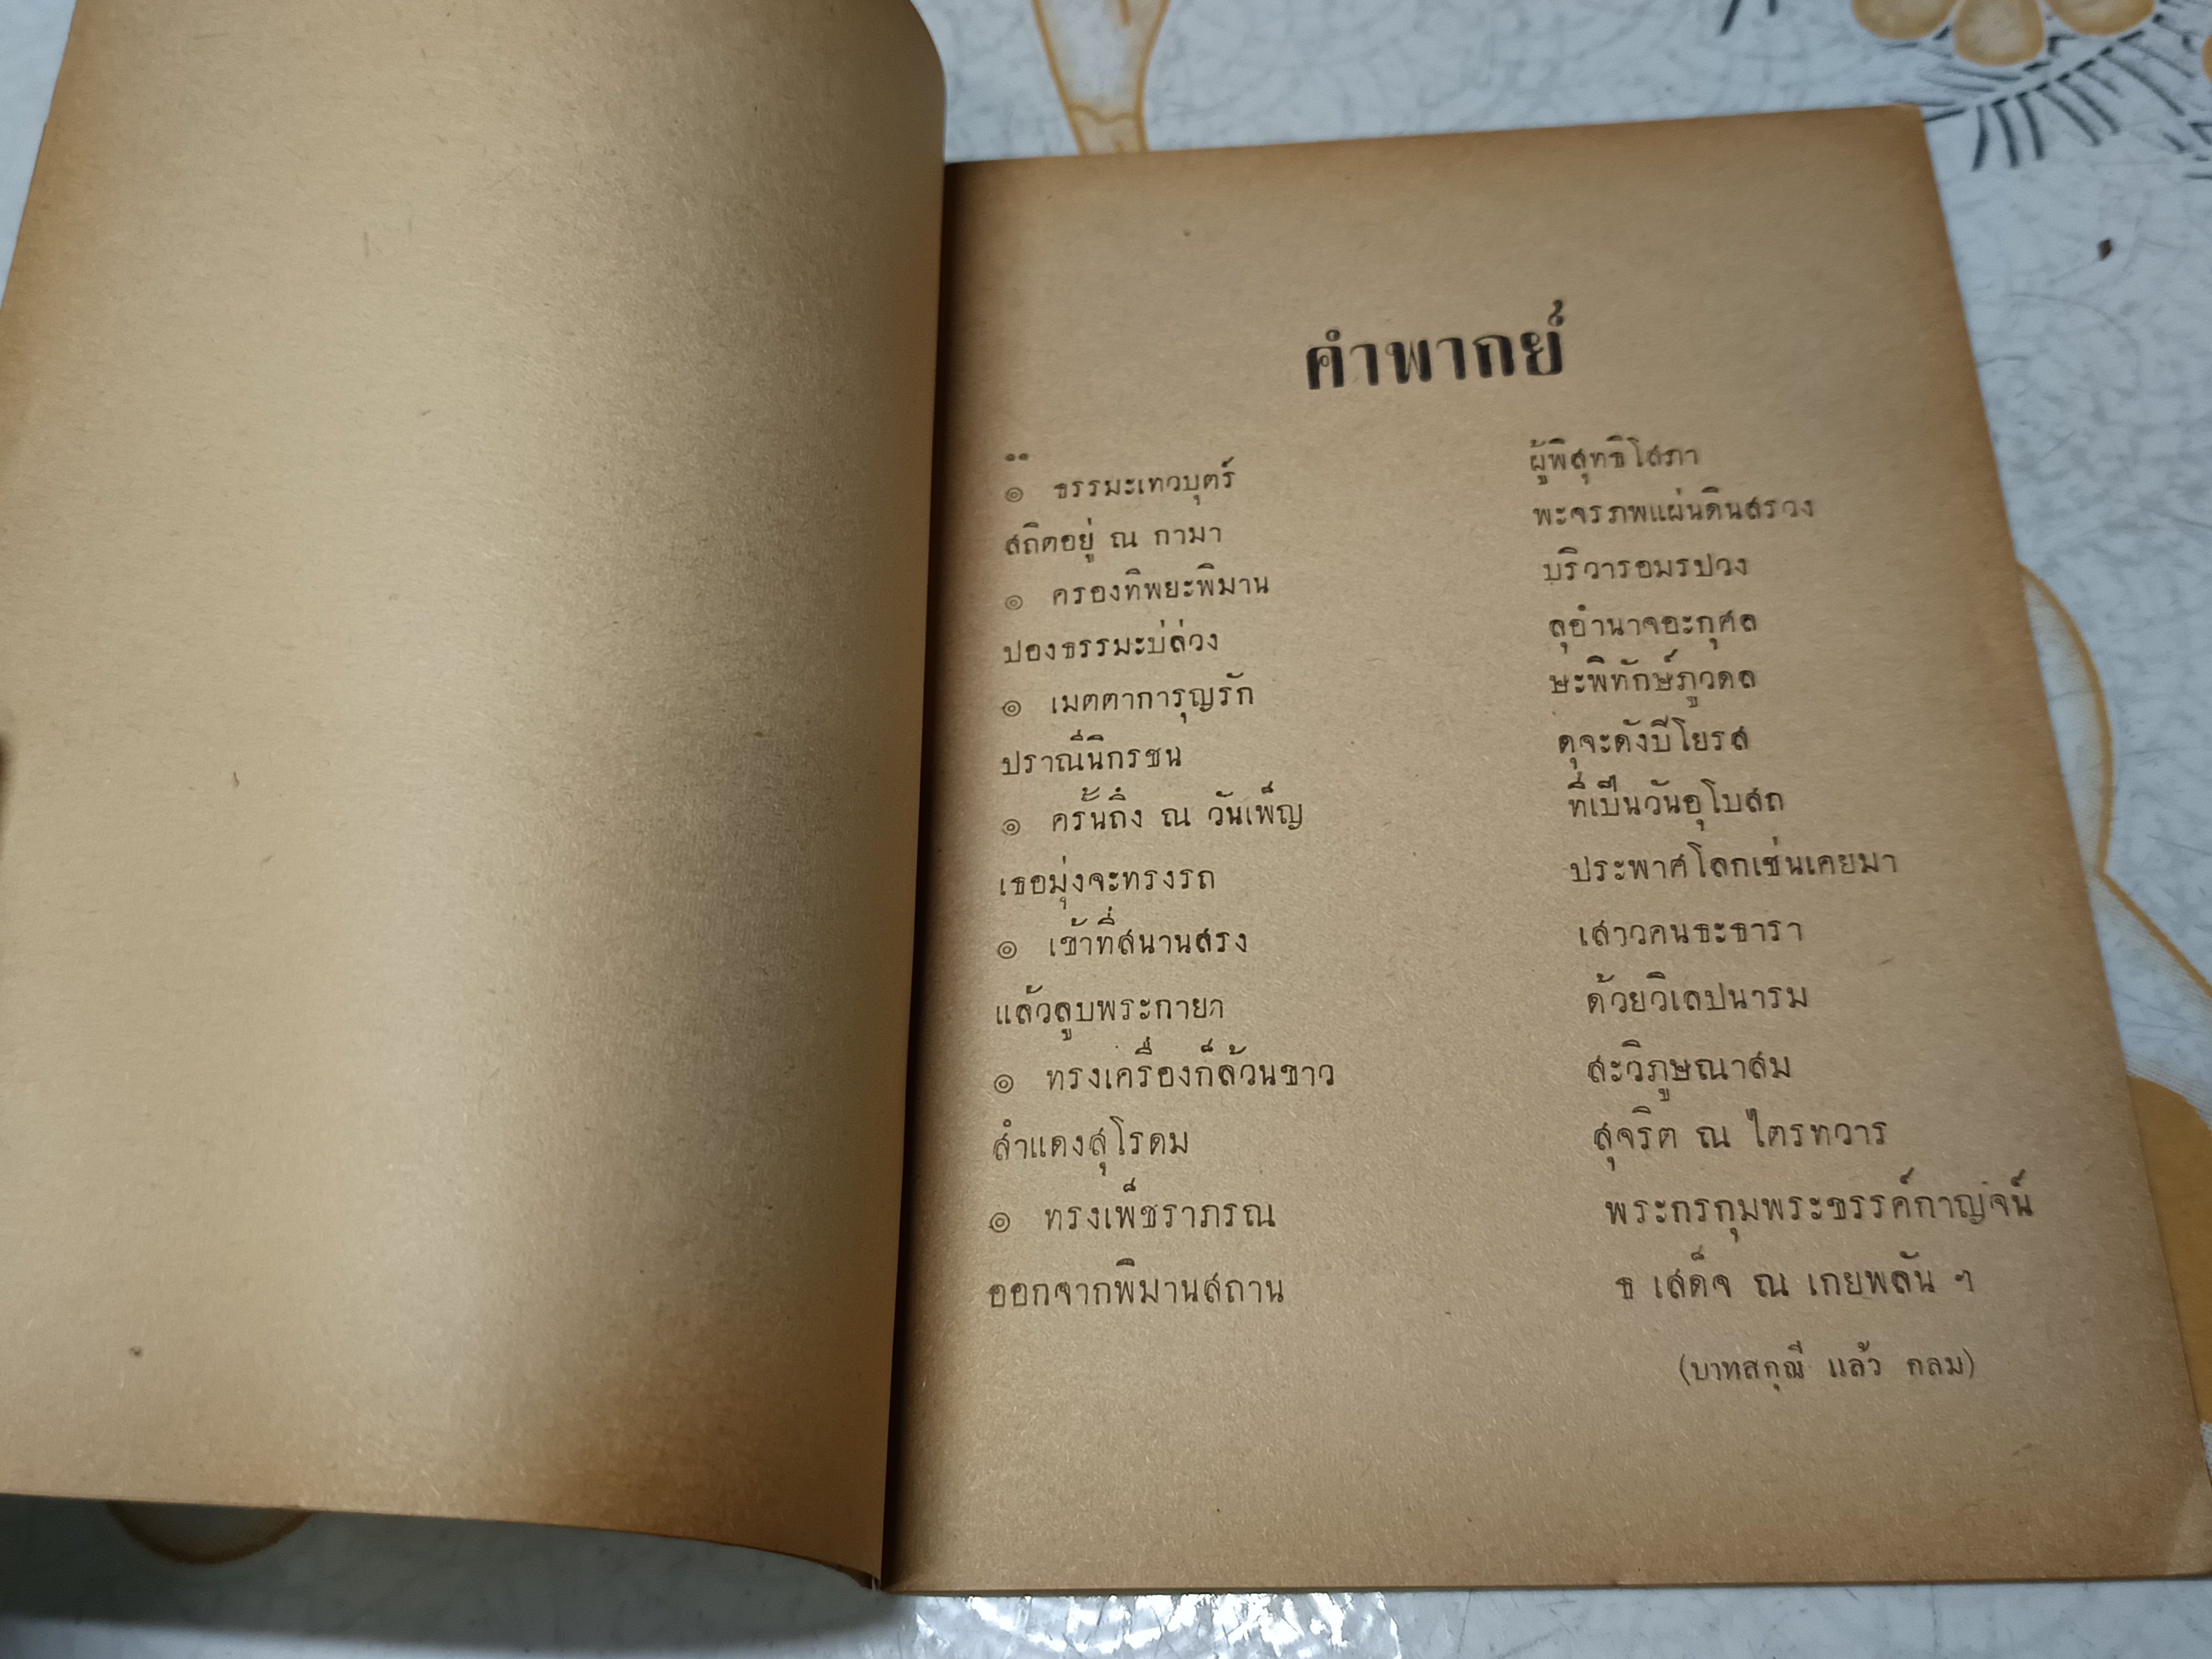 คำพากย์
๏ ธรรมะเทวบุตร์ ผู้พิสุทธิโสภา
สถิตอยู่ ณ กามา พะจรภพแผ่นดินสรวง
๏ ครองทิพยะพิมาน บริวารอมรปวง
ปองธรรมะบ่ล่วง ลุอำนาจอะกุศล
๏ เมตตาการุญรัก ษะพิทักษ์ภูวดล
ปราณีนิกรชน ดุจะดังบีโยรส
๏ ครั้นถึง ณ วันเพ็ญ ที่เป็นวันอุโบสถ
เธอมุ่งจะทรงรถ ประพาศโลกเช่นเคยมา
๏ เข้าที่สนานสรง เสาวคนธะธารา
แล้วลูบพระกายา ด้วยวิเลปนารม
๏ ทรงเครื่องก็ล้วนขาว สะวิภูษณาสม
สำแดงสุโรดม สุจริต ณ ไตรทวาร
๏ ทรงเพ็ชราภรณ พระกรกุมพระขรรค์กาญจน์
ออกจากพิมานสถาน ธ เสด็จ ณ เกยพลัน ฯ
(บาทสกุณี แล้ว กลม)